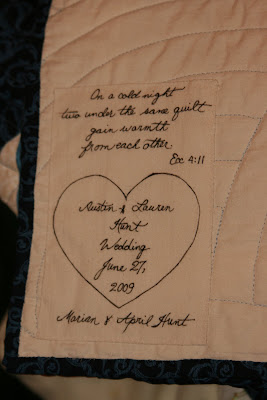 On a cold night
two under the same quilt
gain warmth
from each other.
Ecc 4:11
Austin & Lauren
Hunt
Wedding
June 27,
2009
Marian & April Hunt